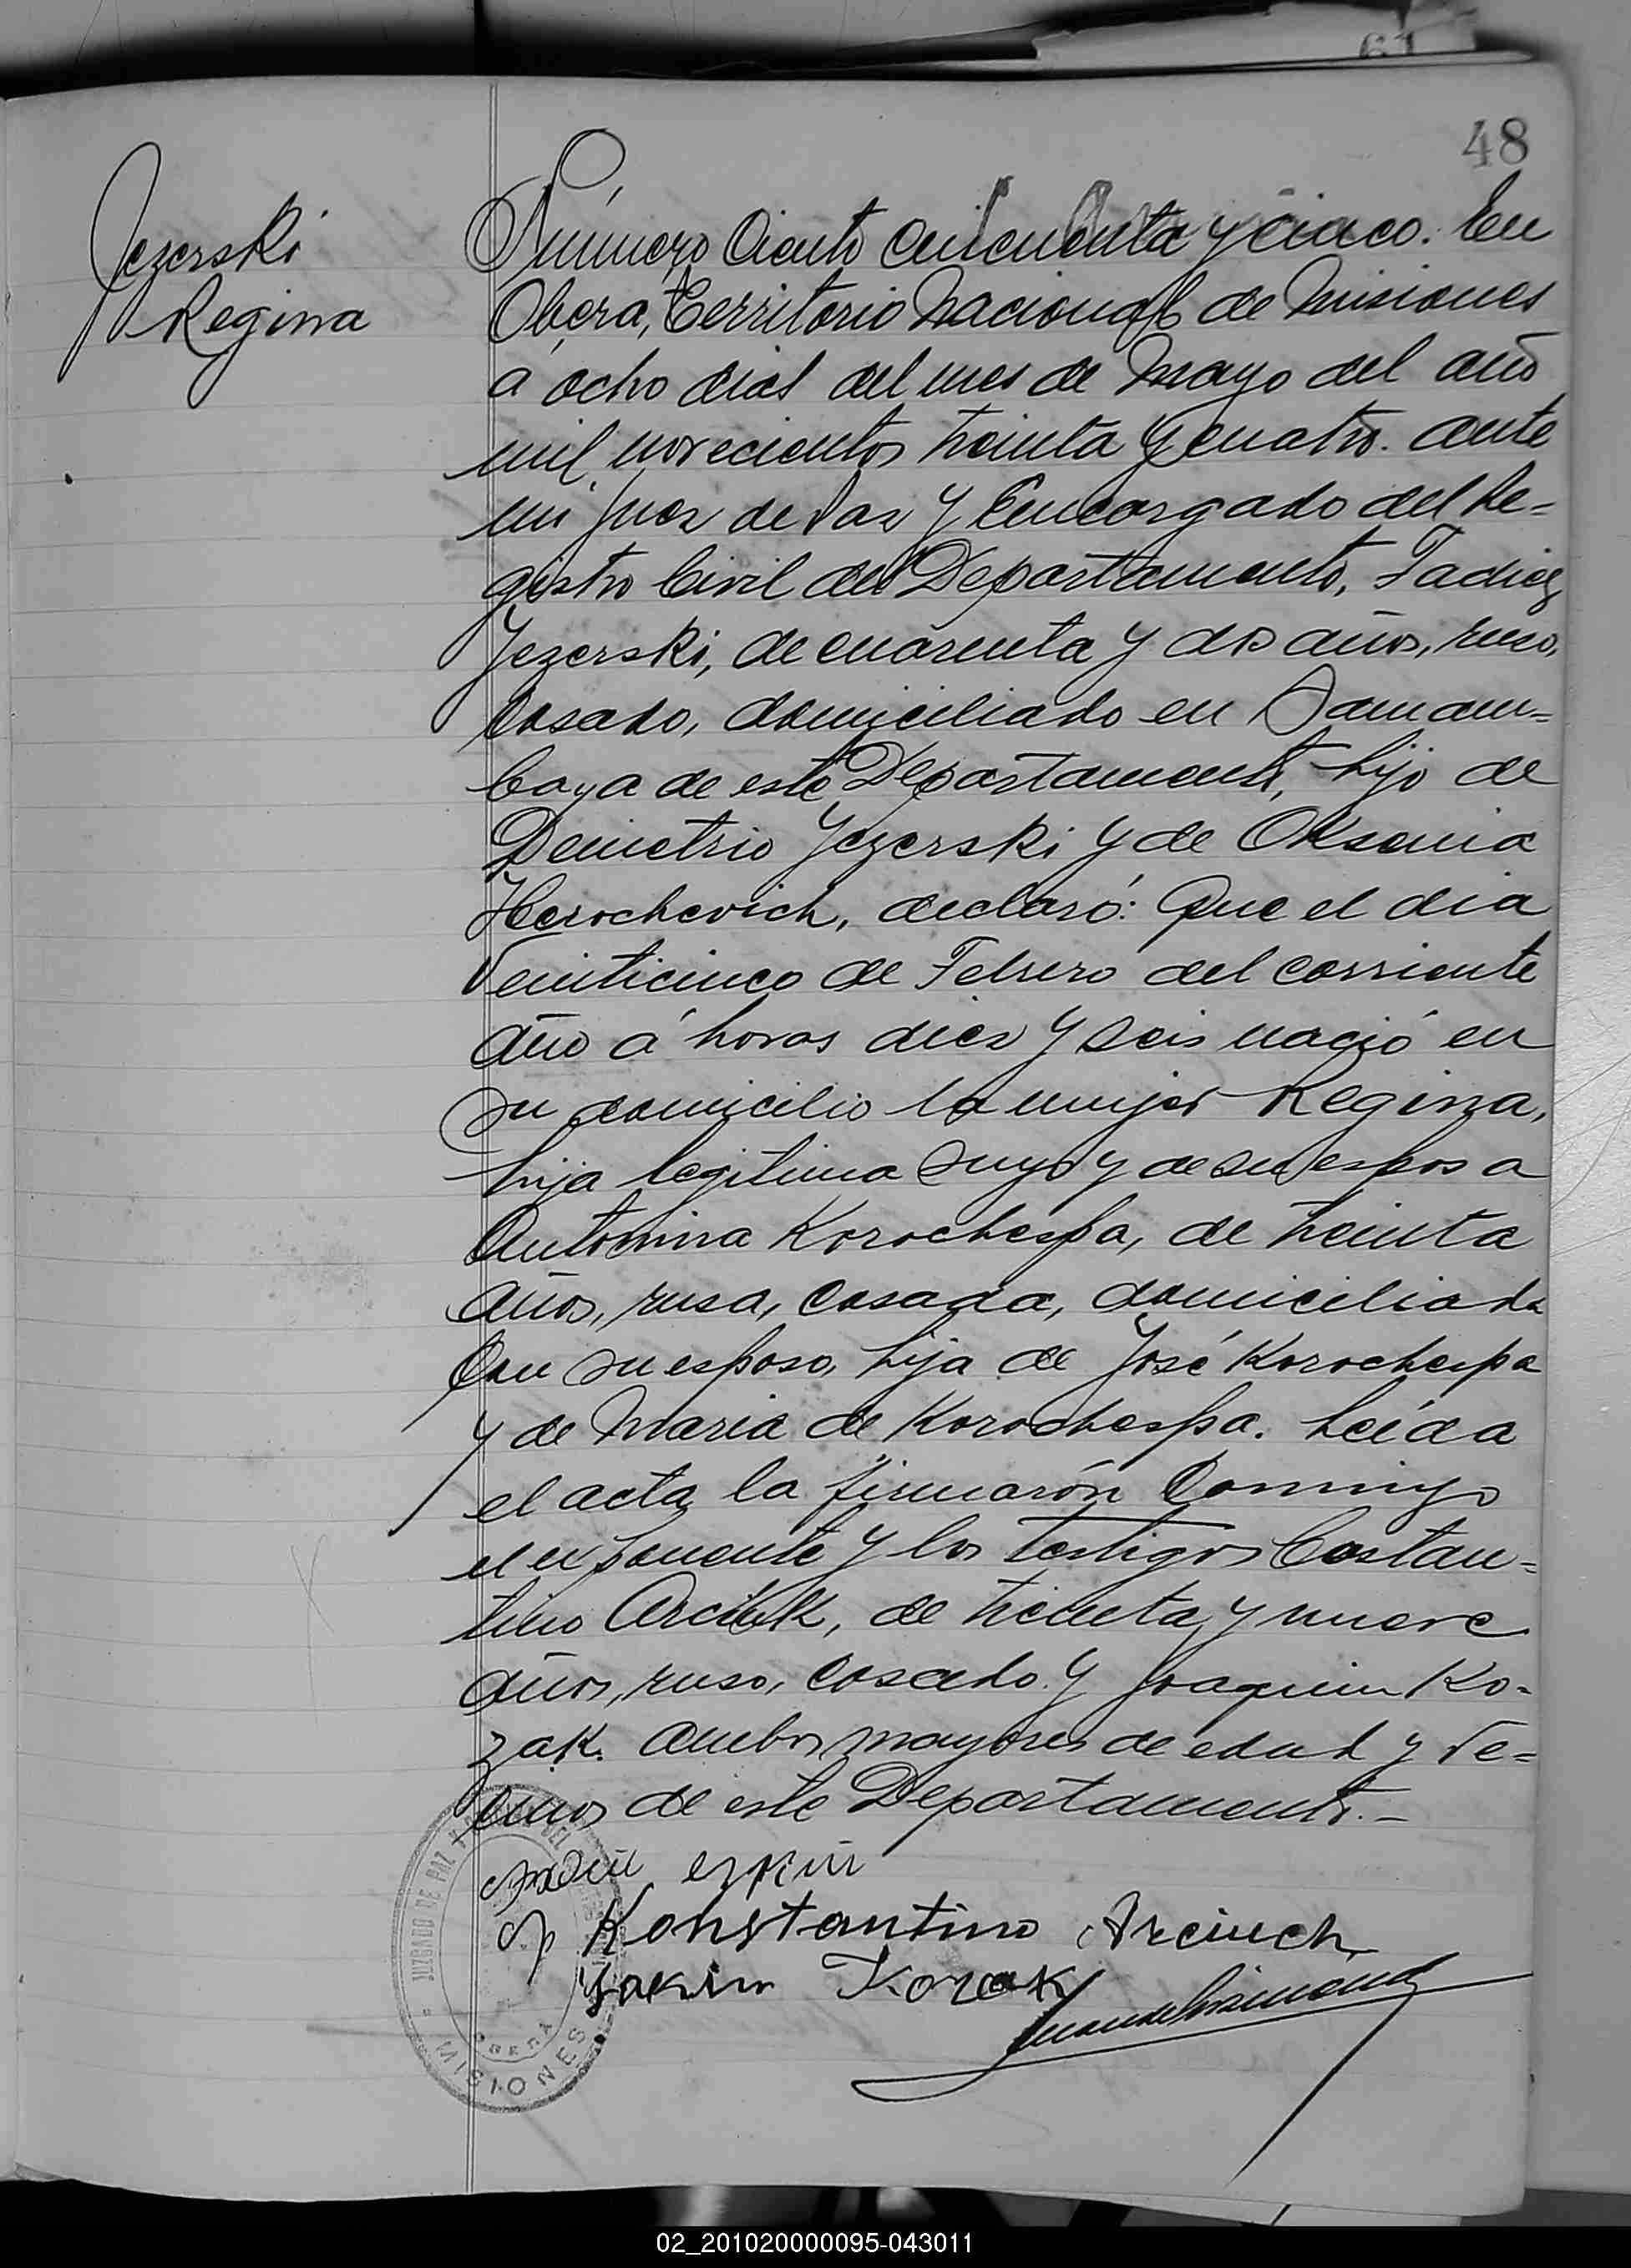 61
48
Jezerski
Regina
Número Ciento Cincuenta y cinco. En
Oberá, Territorio Nacional de Misiones
a ocho dias del mes de Mayo del año
mil novecientos treinta y cuatro. ante
mi Juez de Paz y Encargado del Re=
gistro Civil del Departamento,
Jezerski, de cuarenta y dos años, ruso,
Casado, domiciliado en Samam=
baya de este Departamento, hijo de
Demetrio Jezerski y de Oksania
Herochevich, declaró: Que el dia
Veinticinco de Febrero del corriente
año á horas diez y seis nació en
su domicilio la mujer Regina,
hija legitima suya y de su esposa
Antonina Korochespa, de treinta
años, rusa, casada, domiciliada
Con su esposo, hija de José Korochespa
y de Maria de Korochespa. Leída
el acta la firmarón Conmigo
el exponente y los testigos Costan=
tino Arciuk, de treinta y nueve
años, ruso, casado y Joaquin Ko=
zak. ambos mayores de edad y Ve=
cinos de este Departamento.-
Konstantino Arciuch
Yakim Kozak
JUZGADO DE PAZ Y DEL
OBERA
MISIONES
02_201020000095-043011